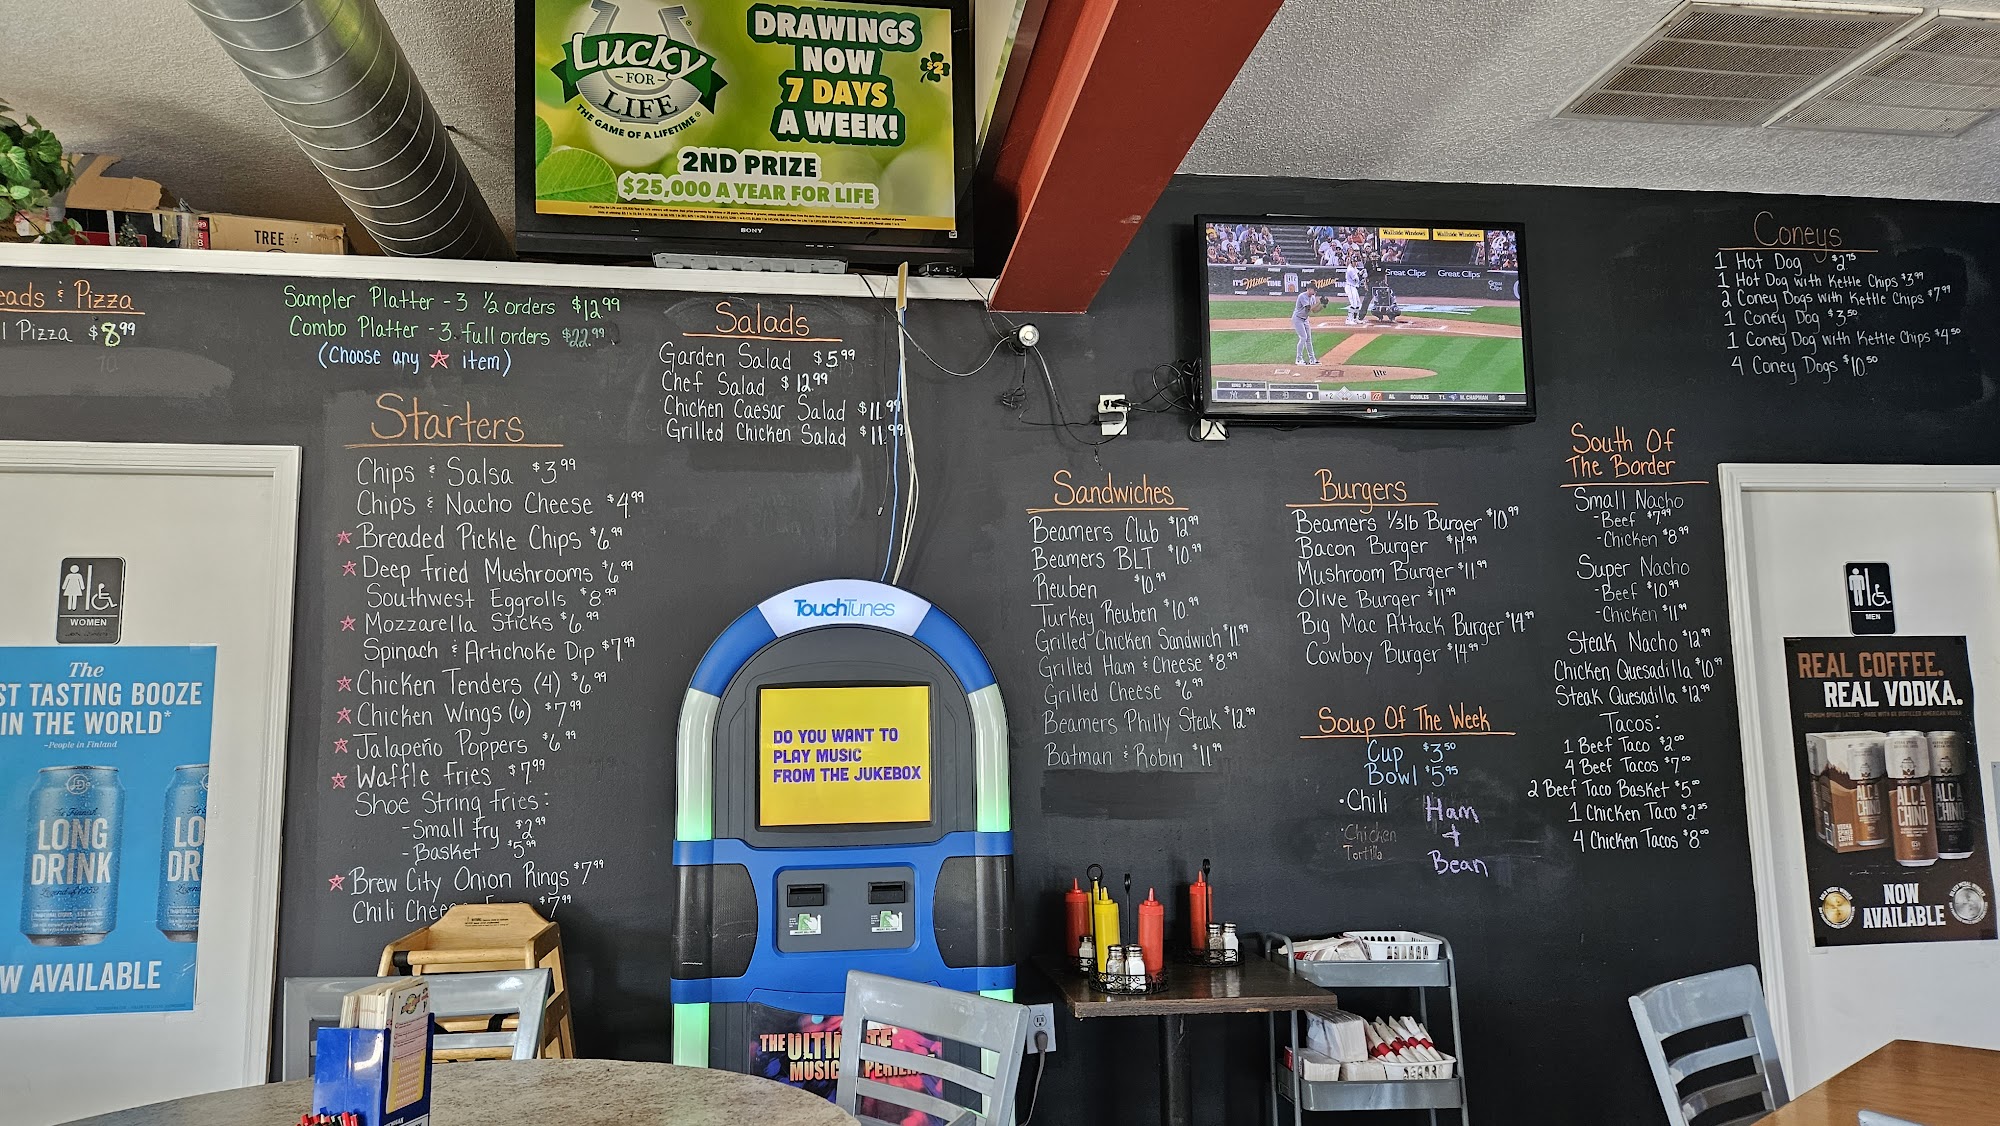 Lucky
FOR
LIFE
THE GAME OF A LIFETIME
DRAWINGS
NOW
7 DAYS
A WEEK!
$2
2ND PRIZE
$25,000 A YEAR FOR LIFE
SONY
TREE
eads & Pizza
l Pizza $8.99
Sampler Platter - 3 1/2 orders $12.99
Combo Platter - 3 full orders $22.99
(Choose any ☆ item)
Starters
Chips & Salsa $3.99
Chips & Nacho Cheese $4.99
☆ Breaded Pickle Chips $6.99
☆ Deep Fried Mushrooms $6.99
Southwest Eggrolls $8.99
☆ Mozzarella Sticks $6.99
Spinach & Artichoke Dip $7.99
☆ Chicken Tenders (4) $6.99
☆ Chicken Wings (6) $7.99
☆ Jalapeño Poppers $6.99
☆ Waffle Fries $7.99
Shoe String Fries:
- Small Fry $2.99
- Basket $5.99
☆ Brew City Onion Rings $7.99
Chili Chee $7.99
Salads
Garden Salad $5.99
Chef Salad $12.99
Chicken Caesar Salad $11.99
Grilled Chicken Salad $11.99
Sandwiches
Beamers Club $12.99
Beamers BLT $10.99
Reuben $10.99
Turkey Reuben $10.99
Grilled Chicken Sandwich $11.99
Grilled Ham & Cheese $8.99
Grilled Cheese $6.99
Beamers Philly Steak $12.99
Batman & Robin $11.99
Burgers
Beamers 1/3lb Burger $10.99
Bacon Burger $11.99
Mushroom Burger $11.99
Olive Burger $11.99
Big Mac Attack Burger $14.99
Cowboy Burger $14.99
Soup Of The Week
Cup $3.50
Bowl $5.95
• Chili
• Chicken
Tortilla
Ham
&
Bean
Coneys
1 Hot Dog $2.75
1 Hot Dog with Kettle Chips $3.99
2 Coney Dogs with Kettle Chips $7.99
1 Coney Dog $3.50
1 Coney Dog with Kettle Chips $4.50
4 Coney Dogs $10.50
South Of
The Border
Small Nacho
- Beef $7.99
- Chicken $8.99
Super Nacho
- Beef $10.99
- Chicken $11.99
Steak Nacho $12.99
Chicken Quesadilla $10.99
Steak Quesadilla $12.99
Tacos:
1 Beef Taco $2.00
4 Beef Tacos $7.00
2 Beef Taco Basket $5.00
1 Chicken Taco $2.25
4 Chicken Tacos $8.00
Wallside Windows
Wallside Windows
Great Clips
Great Clips
LG
TouchTunes
DO YOU WANT TO
PLAY MUSIC
FROM THE JUKEBOX
THE ULTI
MUSIC
WOMEN
The
ST TASTING BOOZE
IN THE WORLD*
-People in Finland
The Finnish
LONG
DRINK
Legend of 1952
LO
DR
W AVAILABLE
MEN
REAL COFFEE.
REAL VODKA.
ALC A
CHINO
ALC A
CHINO
NOW
AVAILABLE